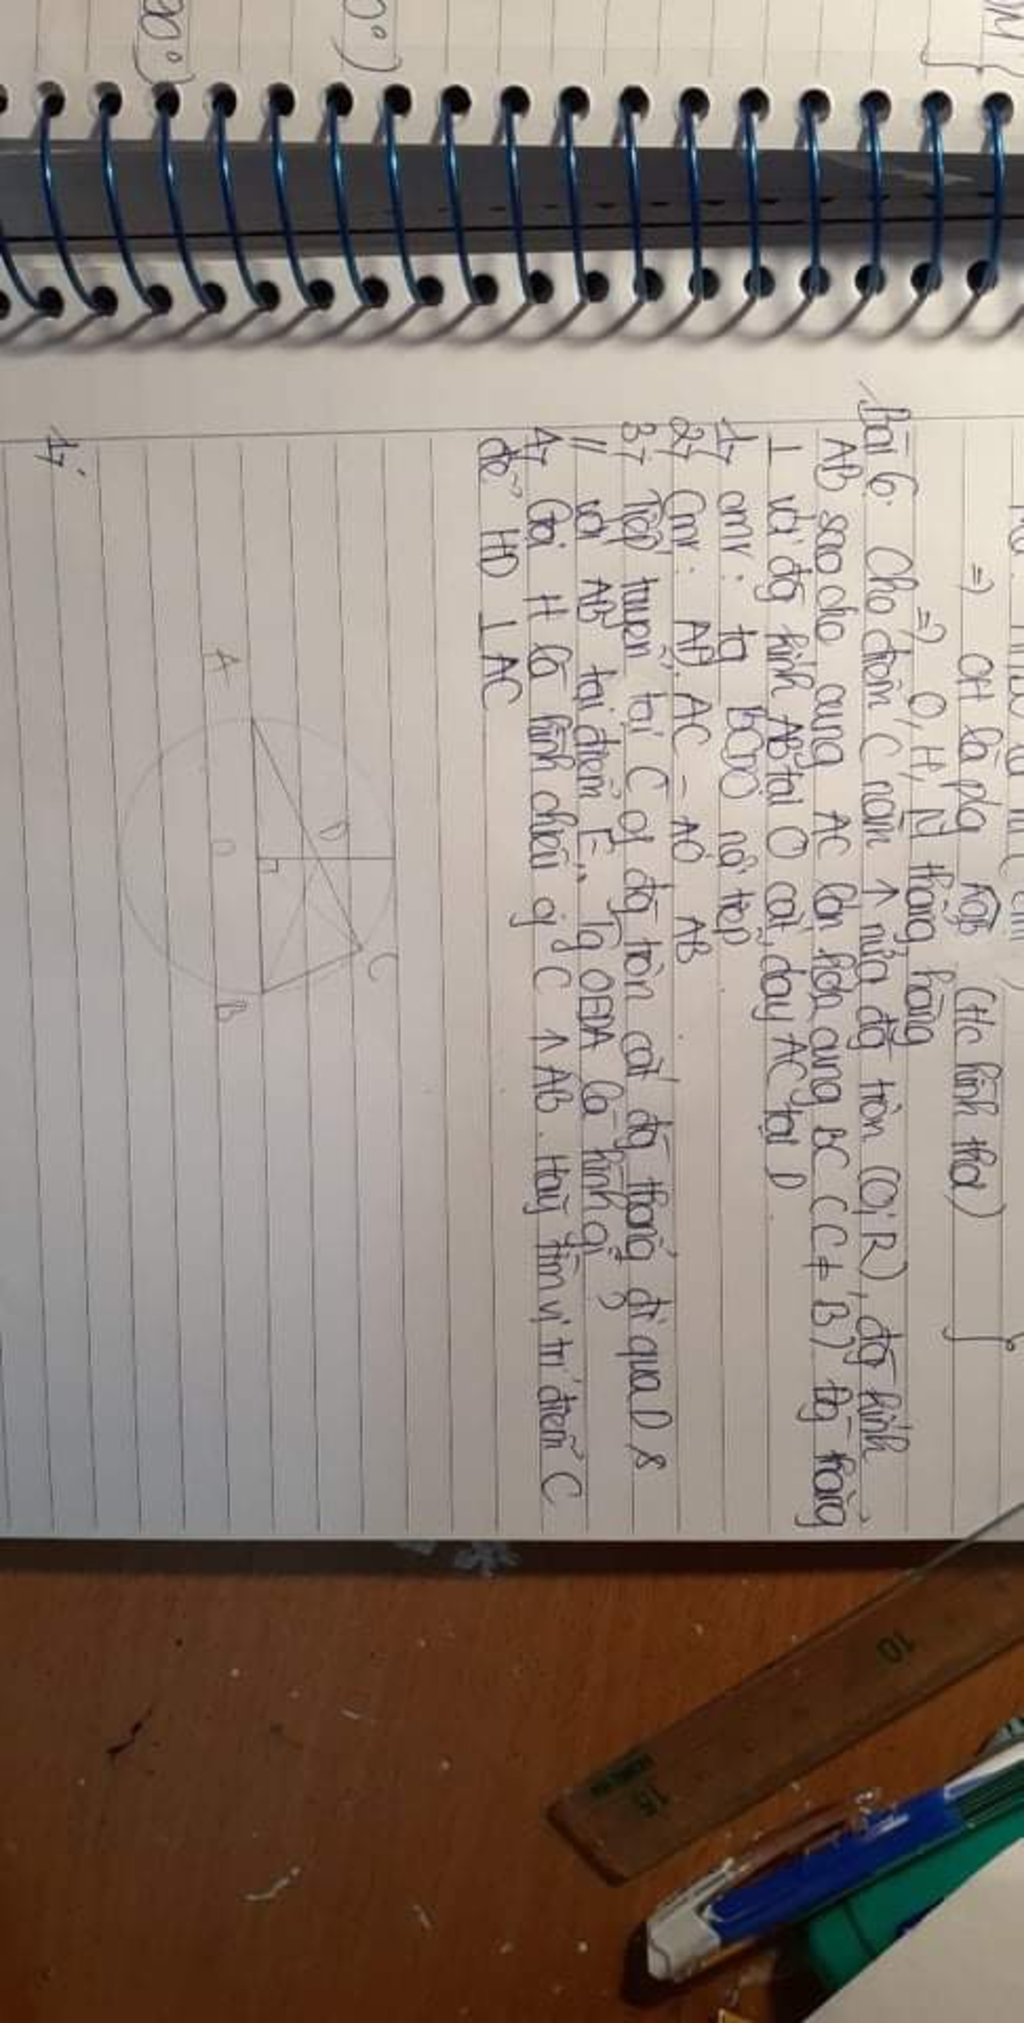 => OH là pg AOB (t/c hình thoi)
=> O, H, N thẳng hàng
Bài 6: Cho điểm C nằm ↑ nửa đg tròn (O; R), đg kính
AB sao cho cung AC lớn hơn cung BC (C ≠ B) đg thẳng
⊥ với đg kính AB tại O cắt dây AC tại D
1, cmr: tg BCDO nội tiếp
2, Cmr: AD. AC = AO. AB
3, Tiếp tuyến tại C of đg tròn cắt đg thẳng đi qua D &
// với AB tại điểm E. Tg OEDA là hình gì?
4, Gọi H là hình chiếu of C ↑ AB. Hãy tìm vị trí điểm C
để HD ⊥ AC
A
D
C
O
B
1,
00°)
0°)
10
15